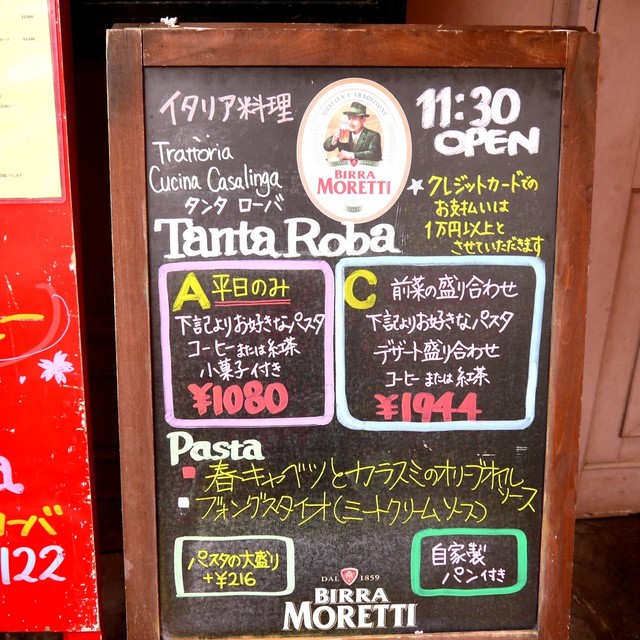 イタリア料理
Trattòria
Cucina Casalinga
タンタ ローバ
Tanta Roba
QUALITÀ E TRADIZIONE
BIRRA
MORETTI
11:30
OPEN
☆クレジットカードでの
お支払いは
1万円以上と
させていただきます
A 平日のみ
下記よりお好きなパスタ
コーヒーまたは紅茶
小菓子付き
¥1080
C 前菜の盛り合わせ
下記よりお好きなパスタ
デザート盛り合わせ
コーヒーまたは紅茶
¥1944
Pasta
春キャベツとカラスミのオリーブオイル
ソース
パスタの大盛り
+¥216
自家製
パン付き
DAL 1859
BIRRA
MORETTI
a
ローバ
122